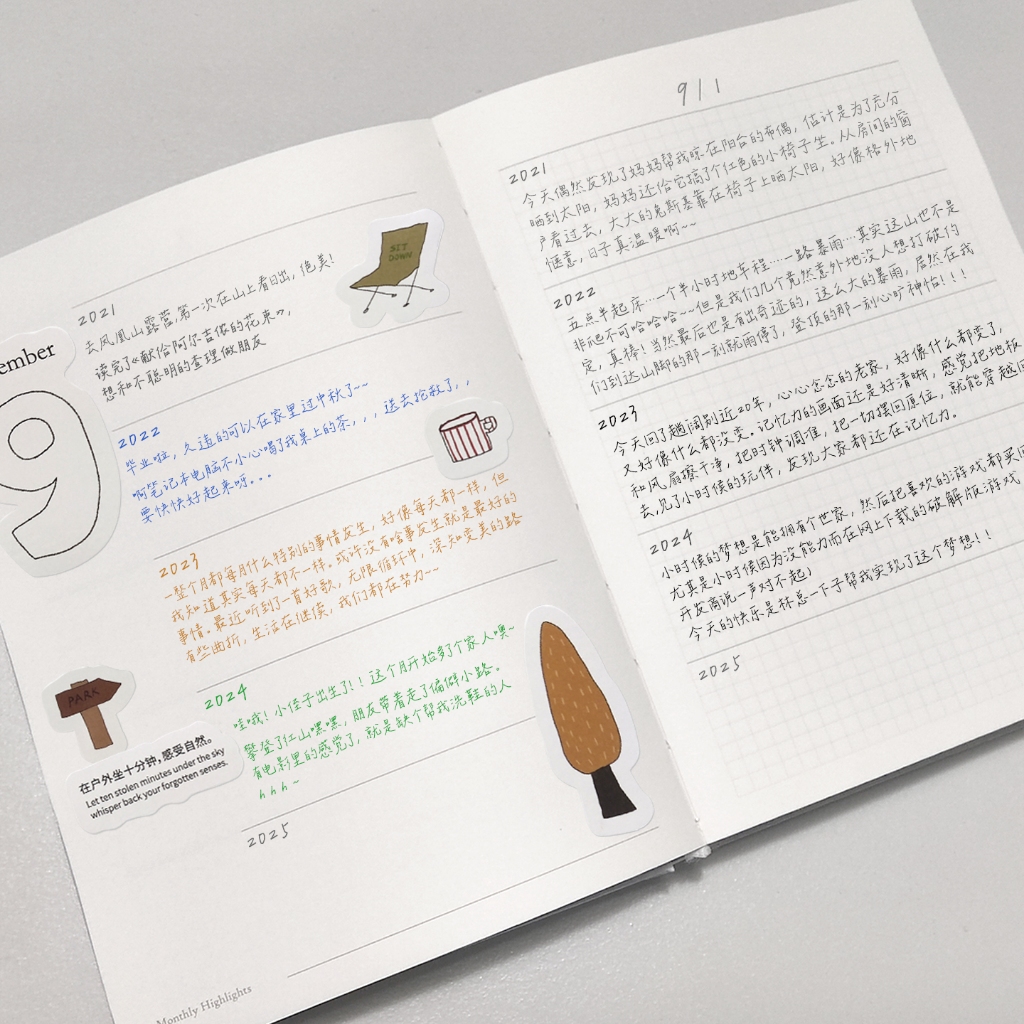 ember
9
2021
去凤凰山露营,第一次在山上看日出,绝美!
读完了《献给阿尔吉侬的花束》,
想和不聪明的查理做朋友
SIT
DOWN
2022
毕业啦,久违的可以在家里过中秋了~~
啊笔记本电脑不小心喝了我桌上的茶,,,送去抢救了,,
要快快好起来呀...
2023
一整个月都每月什么特别的事情发生,好像每天都一样,但
我知道其实每天都不一样。或许没有啥事发生就是最好的
事情。最近听到了一首好歌,无限循环中,深知变美的路
有些曲折,生活在继续,我们都在努力~~
2024
哇哦!小侄子出生了!!这个月开始多了个家人噢~
攀登了仁山嘿嘿,朋友带着走了偏僻小路。
有电影里的感觉了,就是缺个帮我洗鞋的人
hhh~
PARK
在户外坐十分钟,感受自然。
Let ten stolen minutes under the sky
whisper back your forgotten senses.
2025
Monthly Highlights
9/1
2021
今天偶然发现了妈妈帮我晾在阳台的布偶,估计是为了充分
晒到太阳,妈妈还给它搞了个红色的小椅子坐。从房间的窗
户看过去,大大的兔斯基靠在椅子上晒太阳,好像格外地
惬意,日子真温暖啊~~
2022
五点半起床…一个半小时地车程……一路暴雨…其实这山也不是
非爬不可哈哈哈~~但是我们几个竟然意外地没人想打破约
定,真棒!当然最后也是有出奇迹的,这么大的暴雨,居然在我
们到达山脚的那一刻就雨停了,登顶的那一刻心旷神怡!!!
2023
今天回了趟阔别近20年,心心念念的老家,好像什么都变了,
又好像什么都没变。记忆力的画面还是好清晰,感觉把地板
和风扇擦干净,把时钟调准,把一切摆回原位,就能穿越回
去,见了小时候的玩伴,发现大家都还在记忆力。
2024
小时候的梦想是能拥有个世家,然后把喜欢的游戏都买回
尤其是小时候因为没能力而在网上下载的破解版游戏
开发商说一声对不起)
今天的快乐是林总一下子帮我实现了这个梦想!!
2025